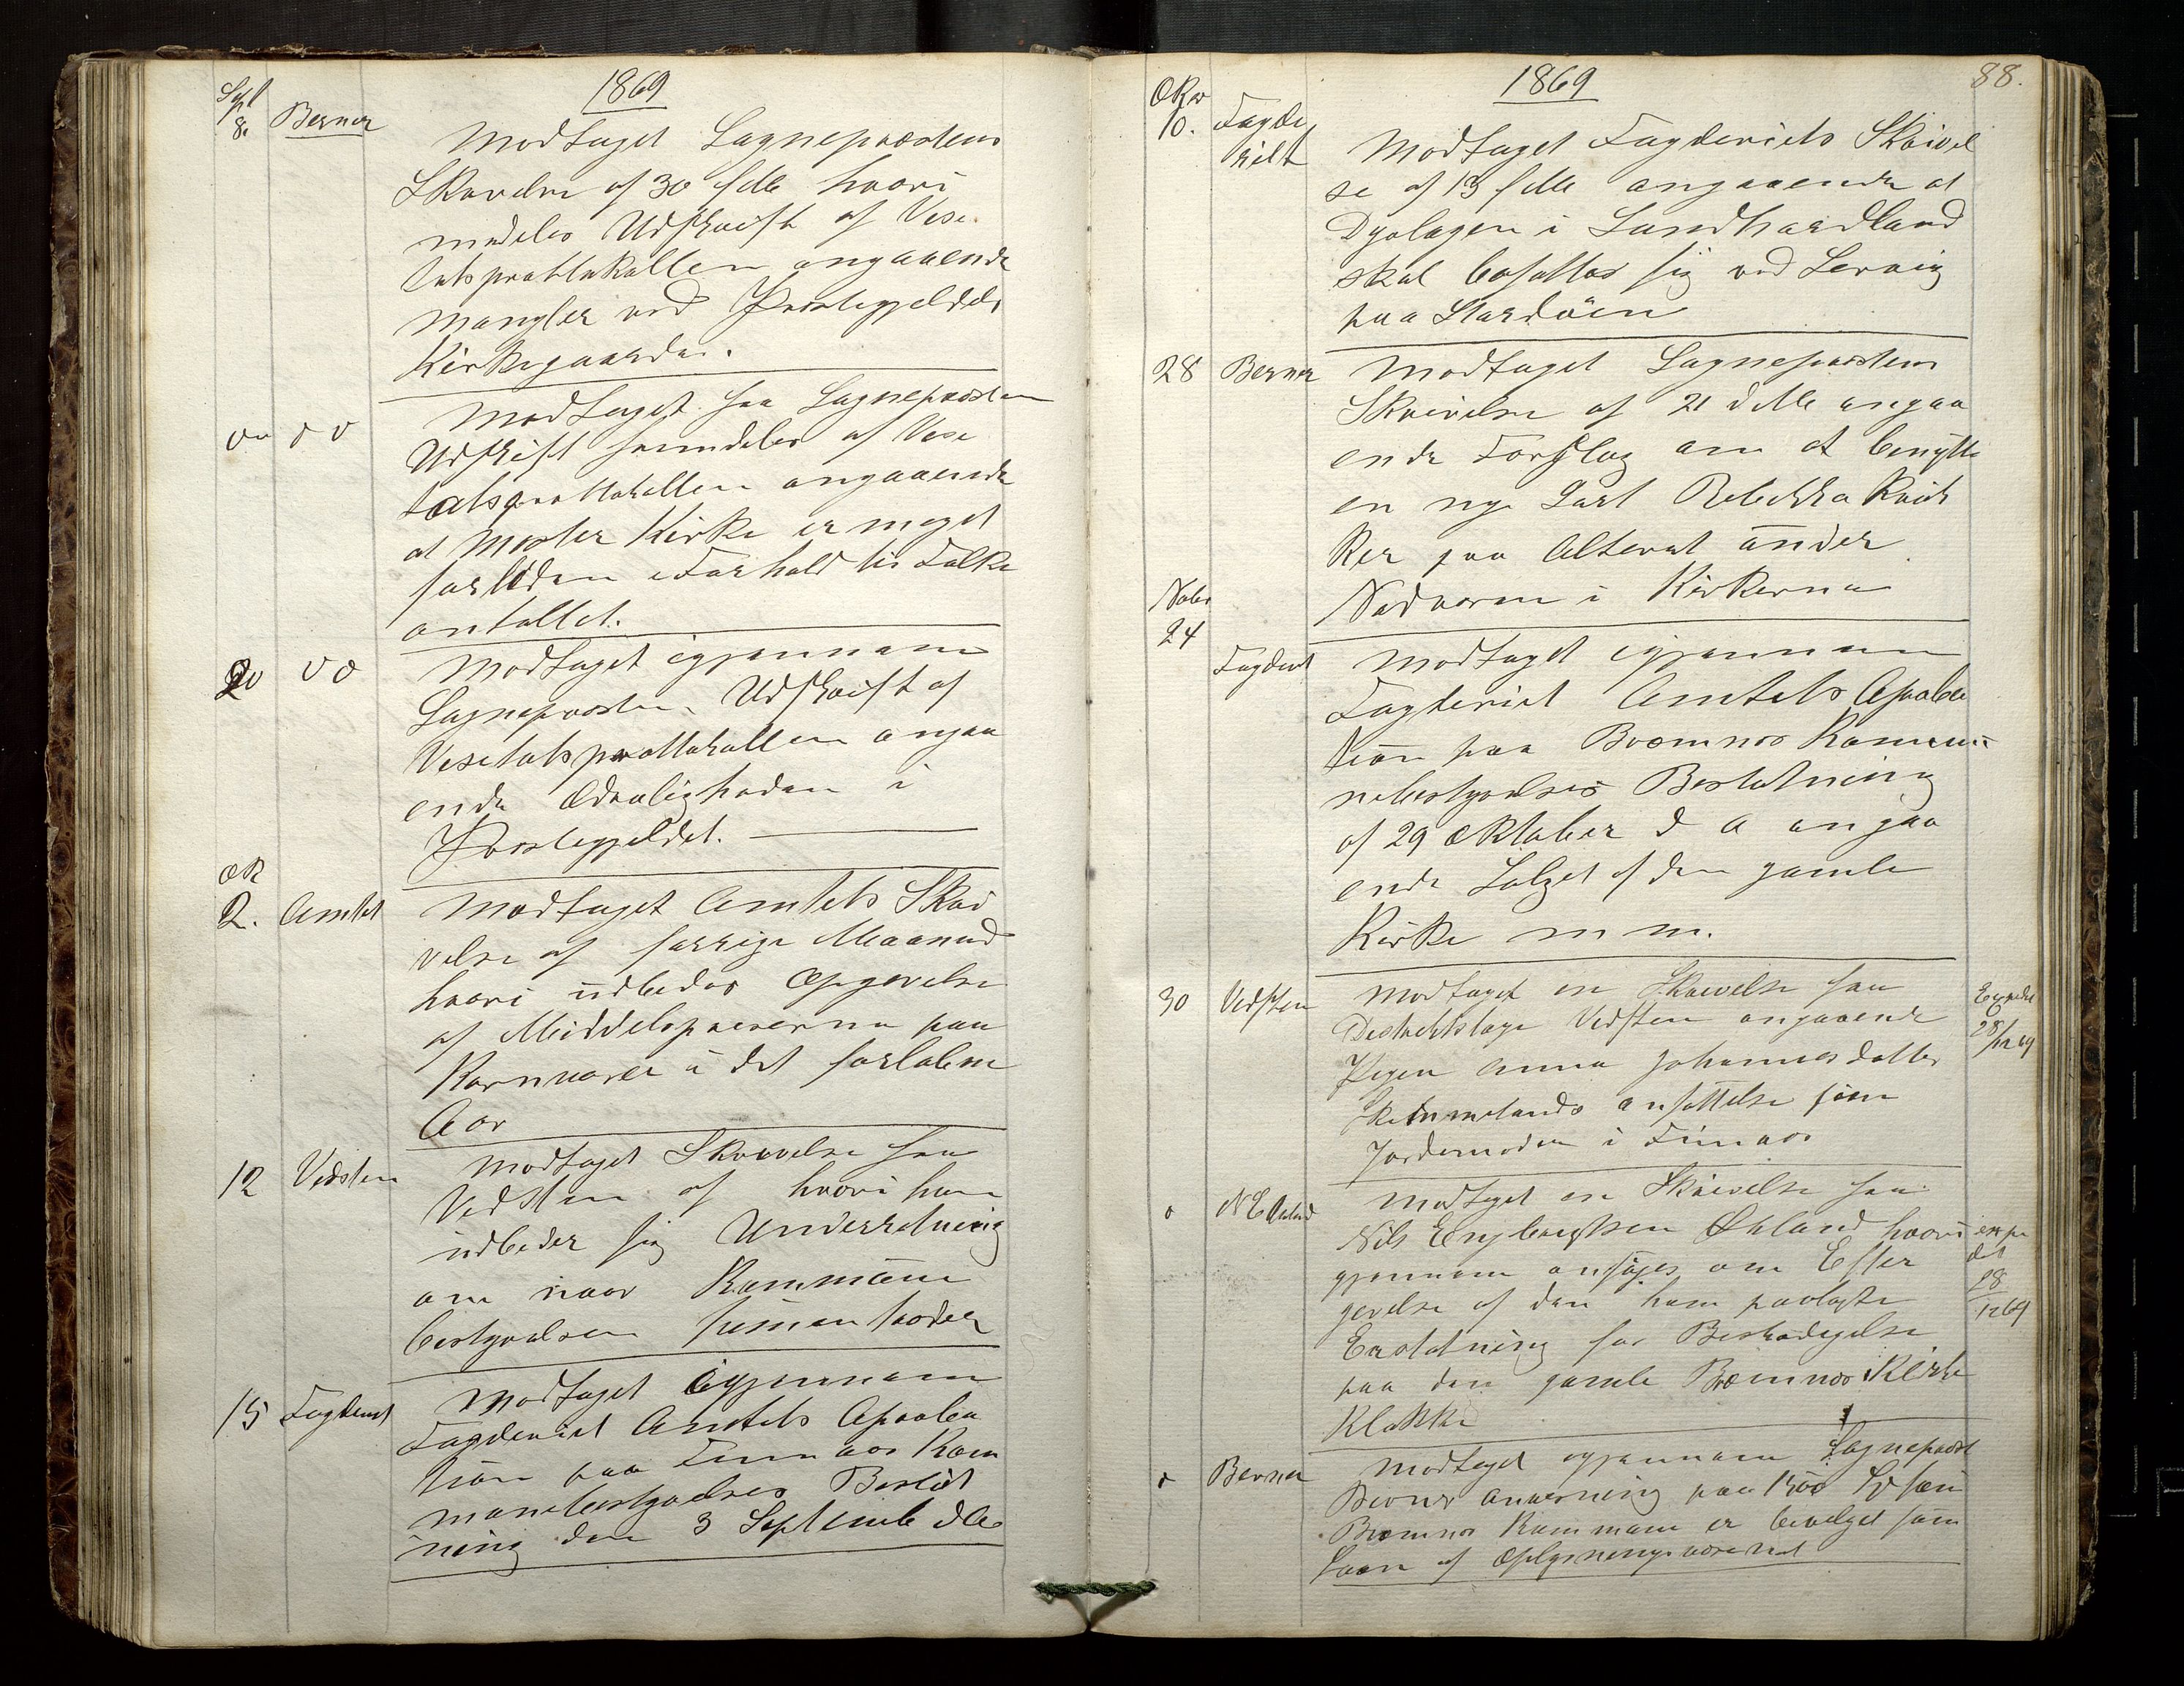 1869
Sept
8. Berner
Modtaget Sognepræstens
Skrivelse af 30 f Mr hvori
meddeles Udskrift af Vise
tatsprottokollen angaaende
Mangler ved Præstegjeldets
Kirkegaarder.
do do
Modtaget fra Sognepræsten
Udskrift fremdeles af Vise
tatsprottokollen angaaende
at Moster Kirke er meget
forliden i Forhold til Folke
antallet.
20 do
Modtaget igjennem
Sognepræsten Udskrift af
Visetatsprottokollen angaa
ende Ædrueligheden i
Præstegjeldet.
Okt
2. Amtet
Modtaget Amtets Skri
velse af forrige Maaned
hvori udbedes Opgivelse
af Middelspriserne paa
Kornvarer i det forløbne
Aar
12 Vedsten
Modtaget Skrivelse fra
Vedsten af hvori han
udbeder sig Underretning
om naar Kommune
bestyrelsen sammentræder
15 Fogderiet
Modtaget igjennem
Fogderiet Amtets Aproba
tion paa Finnaas Kom
munebestyrelses Beslut
ning den 3 Septembr d A
1869
88.
Oktr
10. Fogde
riet
Modtaget Fogderiets Skrivel
se af 13 f Mr angaaende at
Dyrlægen i Søndhordland
skal bosætte sig ved Lervig
paa Stordøen
28 Berner
Modtaget Sognepræstens
Skrivelse af 21 d Mr angaa
ende Forslag om at benytte
en nye Sort Rebekka Kruk
ker paa Alteret under
Nadveren i Kirkerne
Nobr
24
Fogderiet
Modtaget igjennem
Fogderiet Amtets Aproba
tion paa Bræmnæs Kommu
nebestyrelses Beslutning
af 29 Oktober d A angaa
ende Salget af den gamle
Kirke m m.
30 Vedsten
Modtaget en Skrivelse fra
Destriktslæge Vedsten angaaende
Pigen Anna Johannesdatter
ansættelse som
Jordemoder i Finnaas
28/12 69
Modtaget en Skrivelse fra
Nils Engbregtsen Økland hvori
gjennem ansøges om Efter
givelse af den ham paalagte
Erstatning for Beskadigelse
paa den gamle Bræmnæs Kirke
Klokke
expe
det
28
12 69
Berner
Modtaget igjennem Sognepræst
Berner Anvisning paa 1500 Spd som
Bræmnæs Kommune er bevilget som
Laan af Oplysningsvæsenet